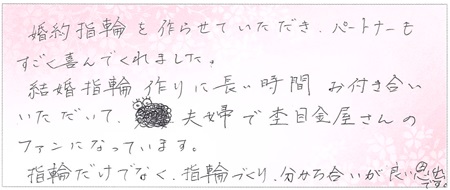 婚約指輪を作らせていただき、パートナーも
すごく喜んでくれました。
結婚指輪作りに長い時間お付き合い
いただいて、夫婦で杢目金屋さんの
ファンになっています。
指輪だけでなく、指輪づくり、分かち合いが良い思い出
です。